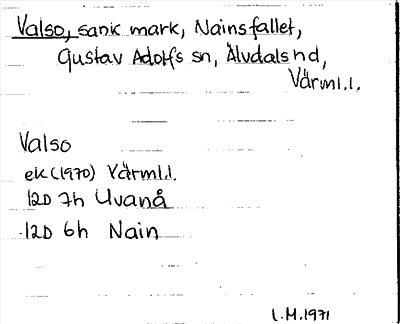 Valso, sank mark, Nainsfallet,
Gustav Adolfs sn, Älvdals hd,
Värml.l.
Valso
ek (1970) Värml.l.
12D 7h Uvanå
12D 6h Nain
L.M.1971